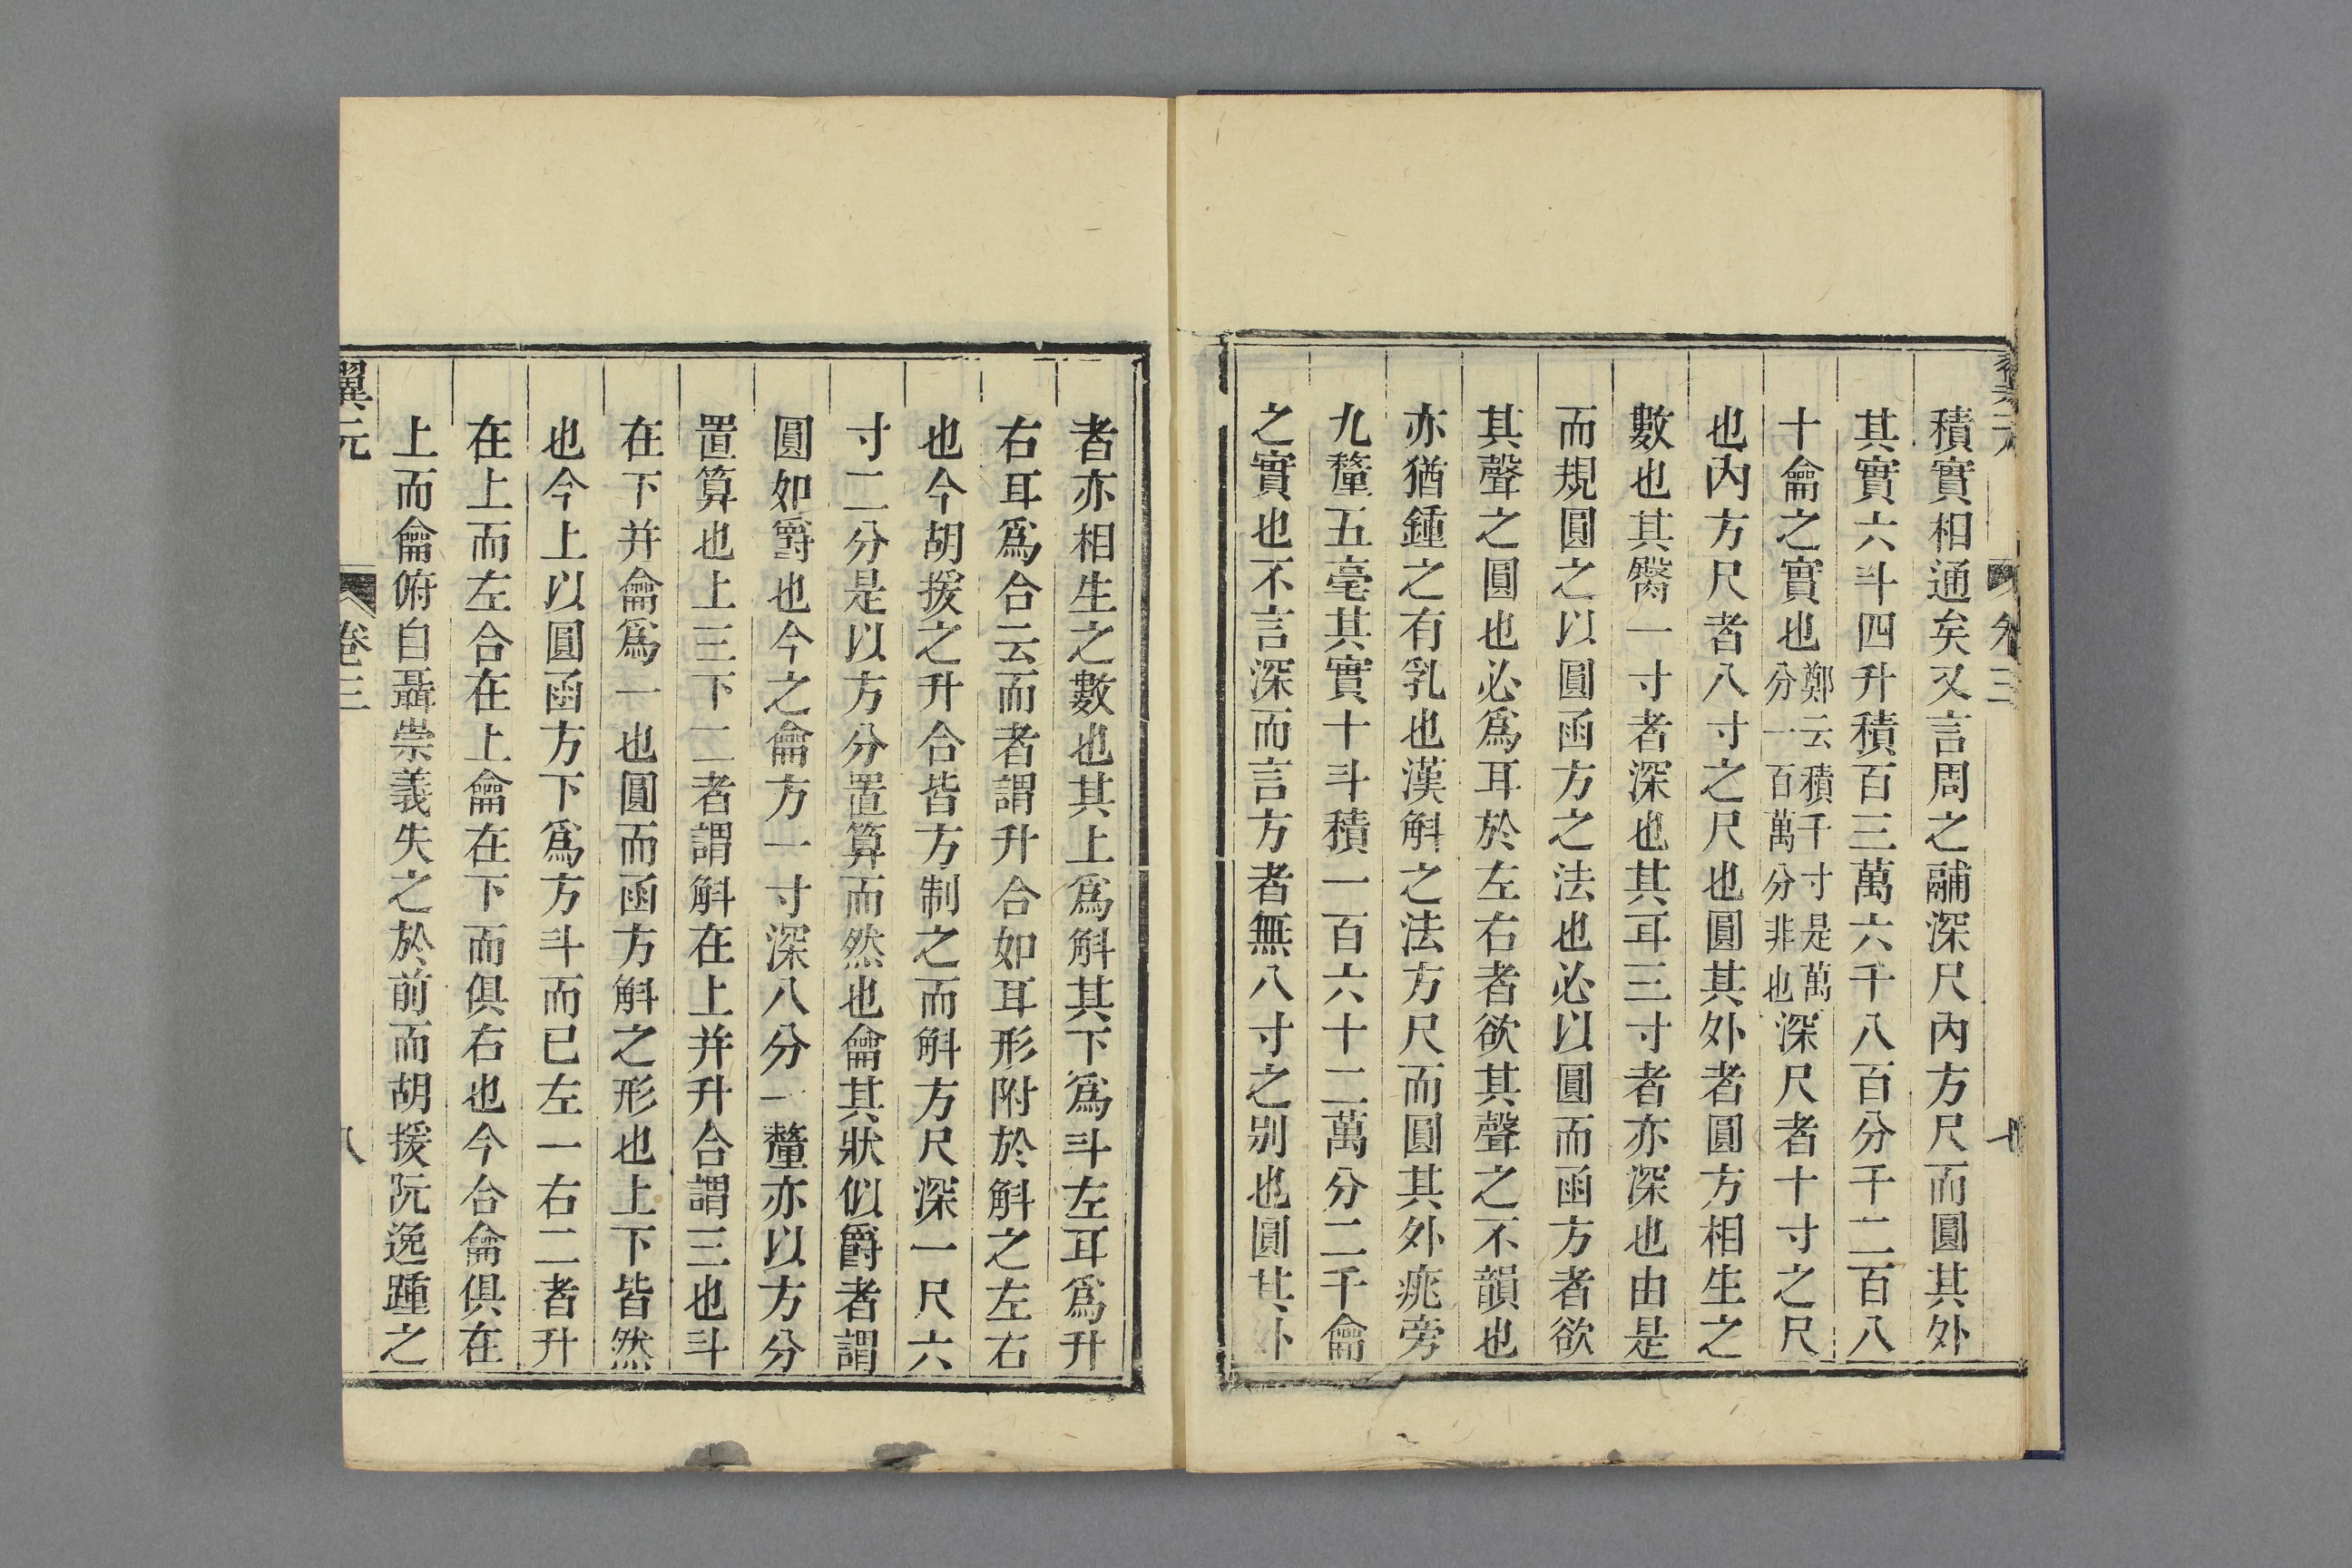 積實相通矣又言周之鬴深尺內方尺而圓其外
其實六斗四升積百三萬六千八百分千二百八
十龠之實也鄭云積千寸是萬分一百萬分非也深尺者十寸之尺
也內方尺者八寸之尺也圓其外者圓方相生之
數也其臋一寸者深也其耳三寸者亦深也由是
而規圓之以圓函方之法也必以圓而函方者欲
其聲之圓也必爲耳於左右者欲其聲之不韻也
亦猶鍾之有乳也漢斛之法方尺而圓其外庣旁
九釐五毫其實十斗積一百六十二萬分二千龠
之實也不言深而言方者無八寸之別也圓其外
者亦相生之數也其上爲斛其下爲斗左耳爲升
右耳爲合云而者謂升合如耳形附於斛之左右
也今胡援之升合皆方制之而斛方尺深一尺六
寸二分是以方分置算而然也龠其狀似爵者謂
圓如爵也今之龠方一寸深八分一釐亦以方分
置算也上三下二者謂斛在上并升合謂三也斗
在下并龠爲一也圓而函方斛之形也上下皆然
也今上以圓函方下爲方斗而已左一右二者升
在上而左合在上龠在下而俱右也今合龠俱在
上而龠俯自聶崇義失之於前而胡援阮逸踵之
翼元
卷三
八